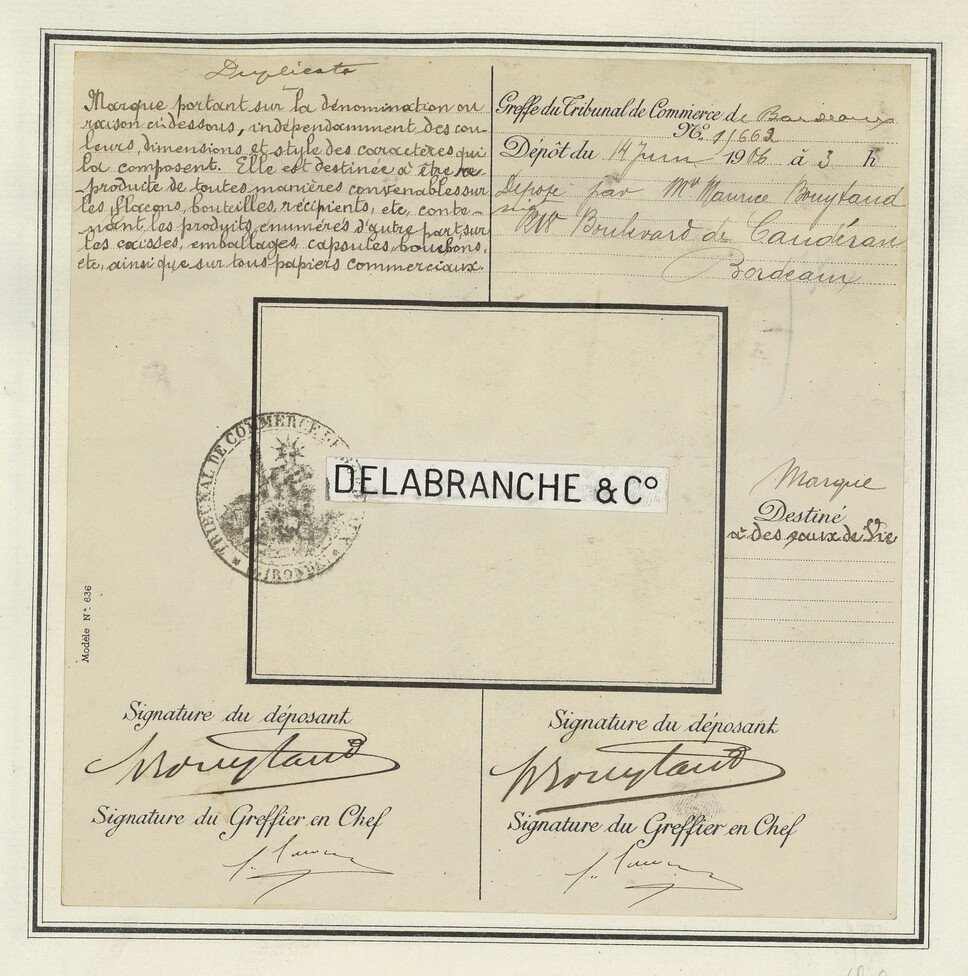 Duplicata
Marque portant sur la dénomination ou
raison ci-dessous, indépendamment des cou-
leurs, dimensions et style des caractères qui
la composent. Elle est destinée à être re-
produite de toutes manières convenables sur
les flacons, bouteilles, récipients, etc, conte-
nant les produits énumérés d'autre part sur
les caisses, emballages, capsules bouchons,
etc, ainsi que sur tous papiers commerciaux.
Greffe du Tribunal de Commerce de Bordeaux
No. 11662
Dépôt du 14 Juin 1906 à 3 h
Déposé par Mr Maurice Bouytaud
Boulevard de Caudéran
Bordeaux
TRIBUNAL DE COMMERCE DE
GIRONDE
DELABRANCHE & Co
Marque
Destiné
à des eaux de Vie
Modèle No. 636
Signature du déposant
Bouytaud
Signature du Greffier en Chef
Signature du déposant
Bouytaud
Signature du Greffier en Chef